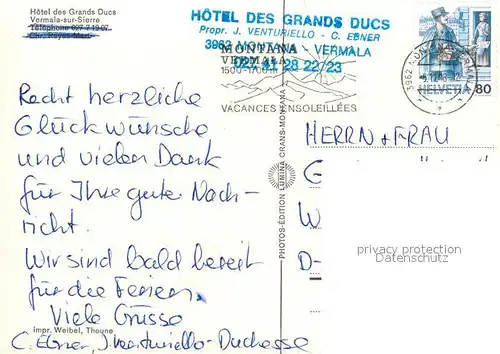 Hôtel des Grands Ducs
Vermala-sur-Sierre
HÔTEL DES GRANDS DUCS
Propr. J. VENTURIELLO - C. EBNER
3962 MONTANA - VERMALA
027 41 28 22/23
MONTANA
VERMALA
1500-1700 m
VACANCES ENSOLEILLÉES
HELVETIA 80
Recht herzliche
Glückwünsche
und vielen Dank
für Ihre gute Nach-
richt.
Wir sind bald bereit
für die Ferien.
Viele Grüsse
C. Ebner, J. Venturiello-Duchesse
impr. Weibel, Thoune
PHOTOS-ÉDITION LUMINA CRANS-MONTANA
HERRN + FRAU
G
W
D-
privacy protection
Datenschutz